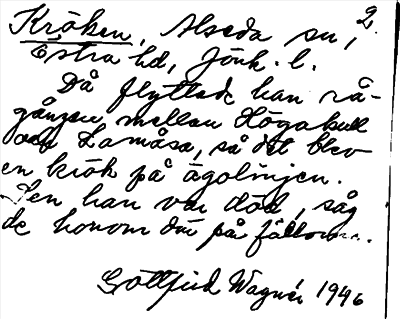 Kröken, Alseda sn, 2
Östra hd, Jönk. l.
Då flyttade han rå-
gången mellan Högakull
och Lamåsa, så det blev
en krök på ägolinjen.
Sen han var död, såg
de honom där på
Gottfrid Wagnér 1946